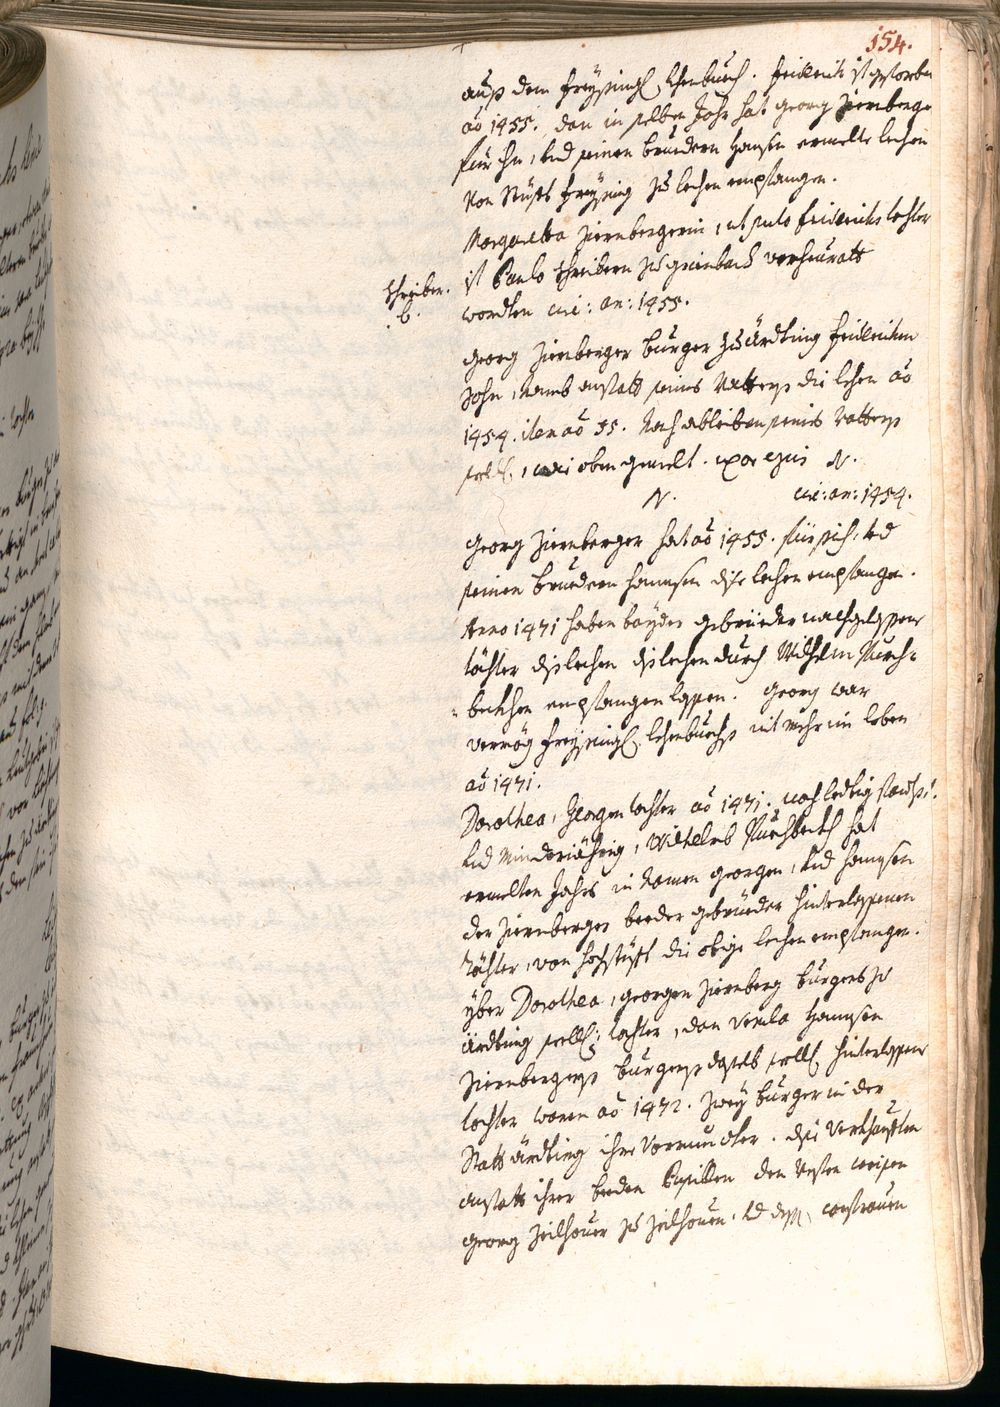 154.
auß dem Freysingl. Lehenbuech. Friderich ist gestorben
ao 1455. dan in selben Jahr hat Georg Ziernberger
für ihn, und seinen bruedern Hansen ermelte lechen
von Stüfft Freysing zu lechen empfangen.
Margaretha Ziernbergerin, Friderichs tochter
ist Paulo Schreibern zu Griesbach verheuratt
Schreiber.
C.
wordten cui: an: 1455.
Georg Ziernberger burger zu ärdting Friderichen
Sohn, namb anstatt seines Vatters die lehen ao
1454. item ao 55. Nach ableiben seines Vatters
seel., wie oben gemelt. uxor ejus N.
N. cui: an: 1454.
Georg Ziernberger hat ao 1455. für sich, und
seinen bruedern Hannsen dise lechen empfangen.
Anno 1471 haben bayder gebrüeder nachgelassene
töchter dise lechen dise lechen durch Wilhelm Puech-
beckhen empfangen lassen. Georg war
vermög Freysingl. lehenbuechs nit mehr im leben
ao 1471.
Dorothea, Georgen tochter ao 1471. noch ledtig stands:
und Minderjährig, Wilhelmb Puechbeckh hat
ermelten Jahrs in Namen Georgen, und Hannsen
der Ziernberger beeder gebrüeder hinterlassenen
Töchter, von hochstüfft die obige lechen empfangen.
yber Dorothea, Georgen Ziernberg burgers zu
ärdting seell: tochter, dan Ursula Hannsen
Ziernbergers burgers daselb seell. hinterlassene
tochter waren ao 1472. zwey burger in der
Statt ärdting ihre Vormundter. dise Verkhaufften
anstatt ihrer beeden Pupillen den Vesten weisen
Georg Zeilhouer zu Zeilhouen. und dessen